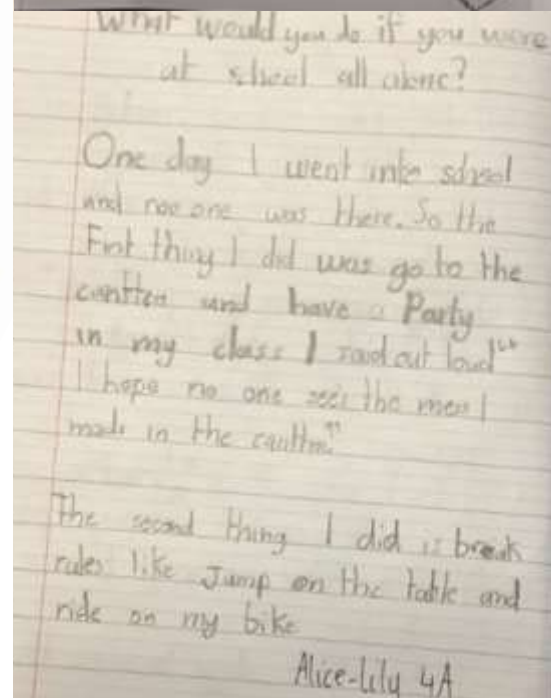 What would you do if you were
at school all alone?
One day I went into school
and noo one was there. So the
First thing I did was go to the
cantten and have a Party
in my class I said out loud"
I hope no one sees the mess I
made in the cantten"
The second thing I did is break
rules like Jump on the table and
ride on my bike
Alice-Lily 4A